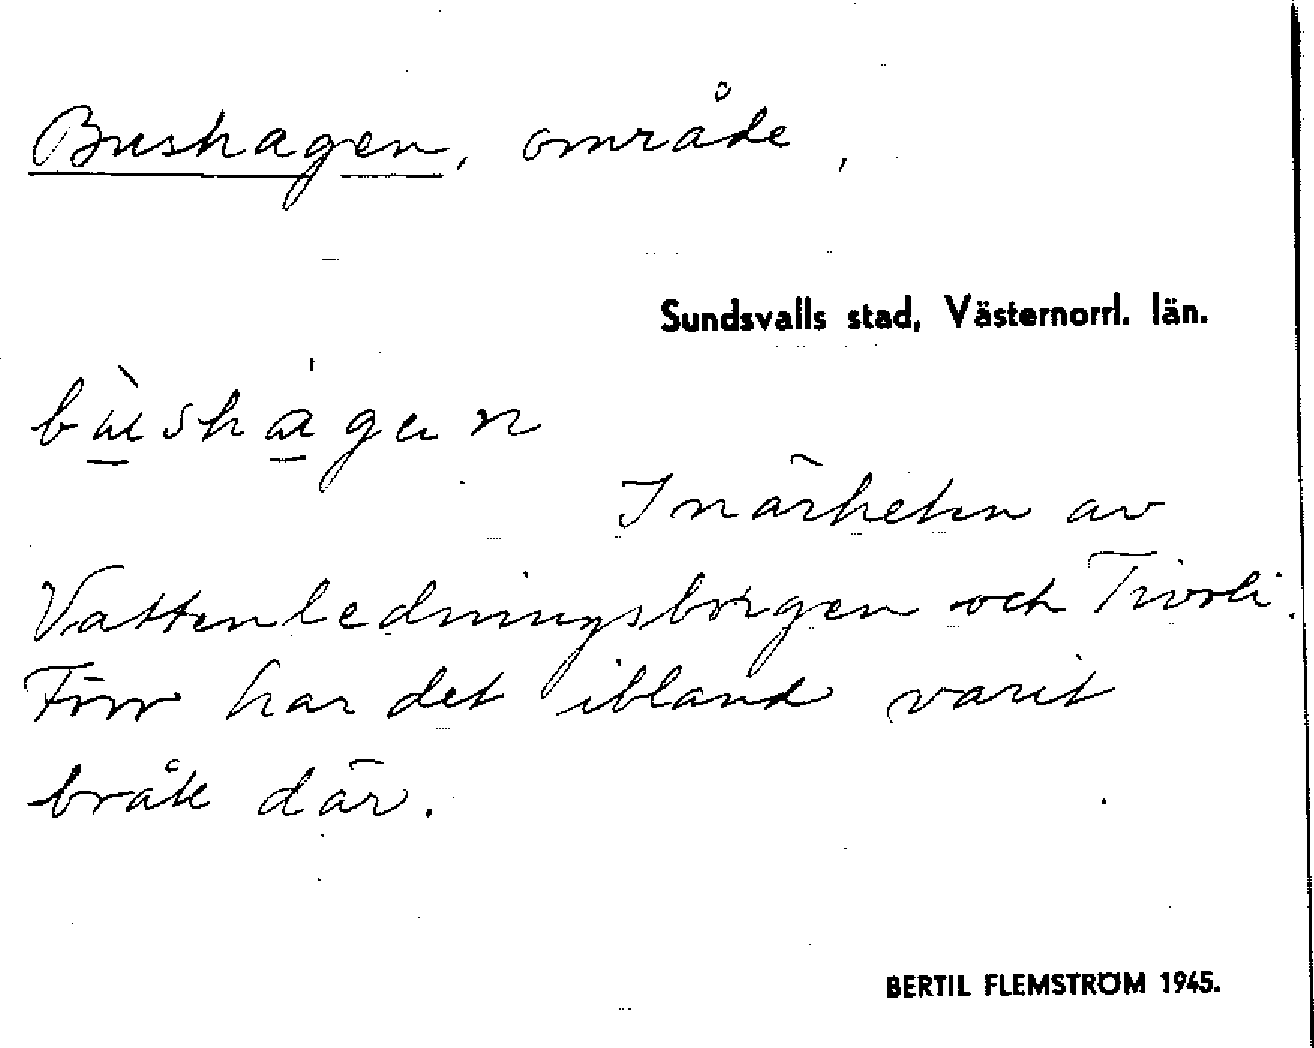 Bushagen, område,
Sundsvalls stad, Västernorrl. län.
bùshágen
I närheten av
Vattenledningsborgen och Tivoli.
Förr har det ibland varit
bråk där.
BERTIL FLEMSTRÖM 1945.